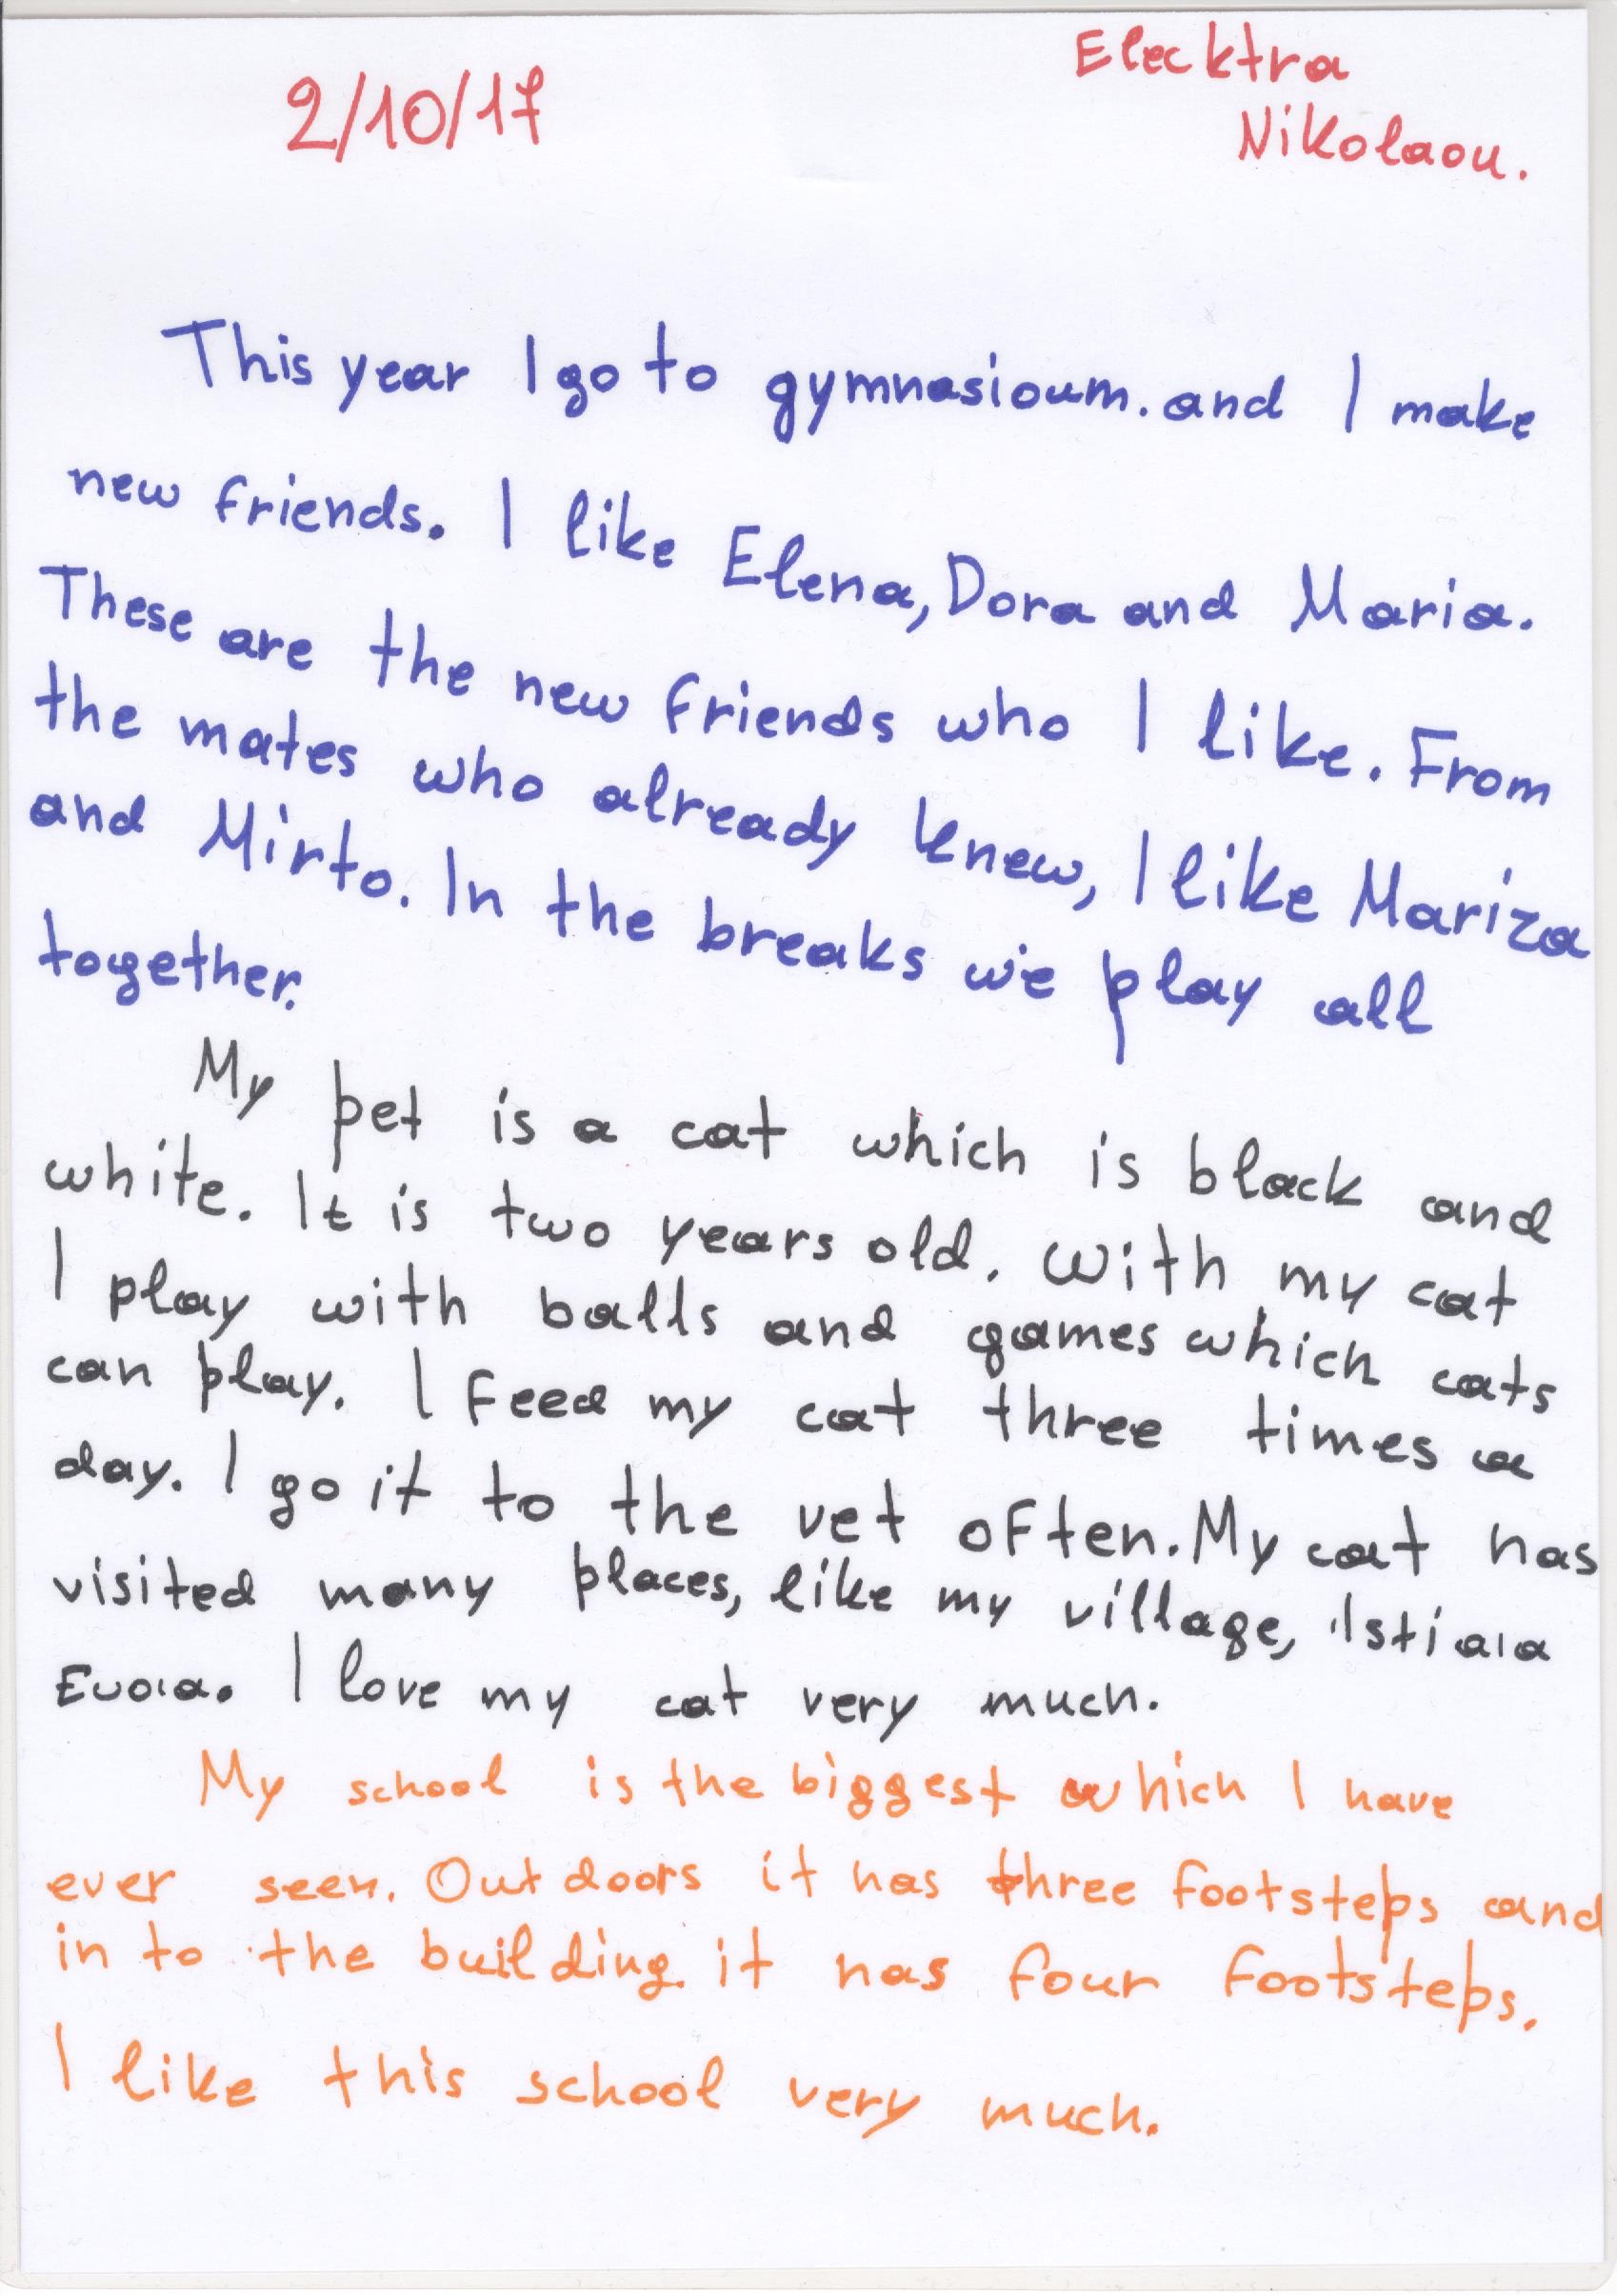 2/10/17
Elecktra
Nikolaou.
This year I go to gymnasioum. and I make
new friends. I like Elena, Dora and Maria.
These are the new friends who I like. From
the mates who already knew, I like Mariza
and Mirto. In the breaks we play all
together.
My pet is a cat which is black and
white. It is two years old. With my cat
I play with balls and games which cats
can play. I feed my cat three times a
day. I go it to the vet often. My cat has
visited many places, like my village, Istiaia
Evoia. I love my cat very much.
My school is the biggest which I have
ever seen. Out doors it has three footsteps and
in to the building it has four footsteps.
I like this school very much.